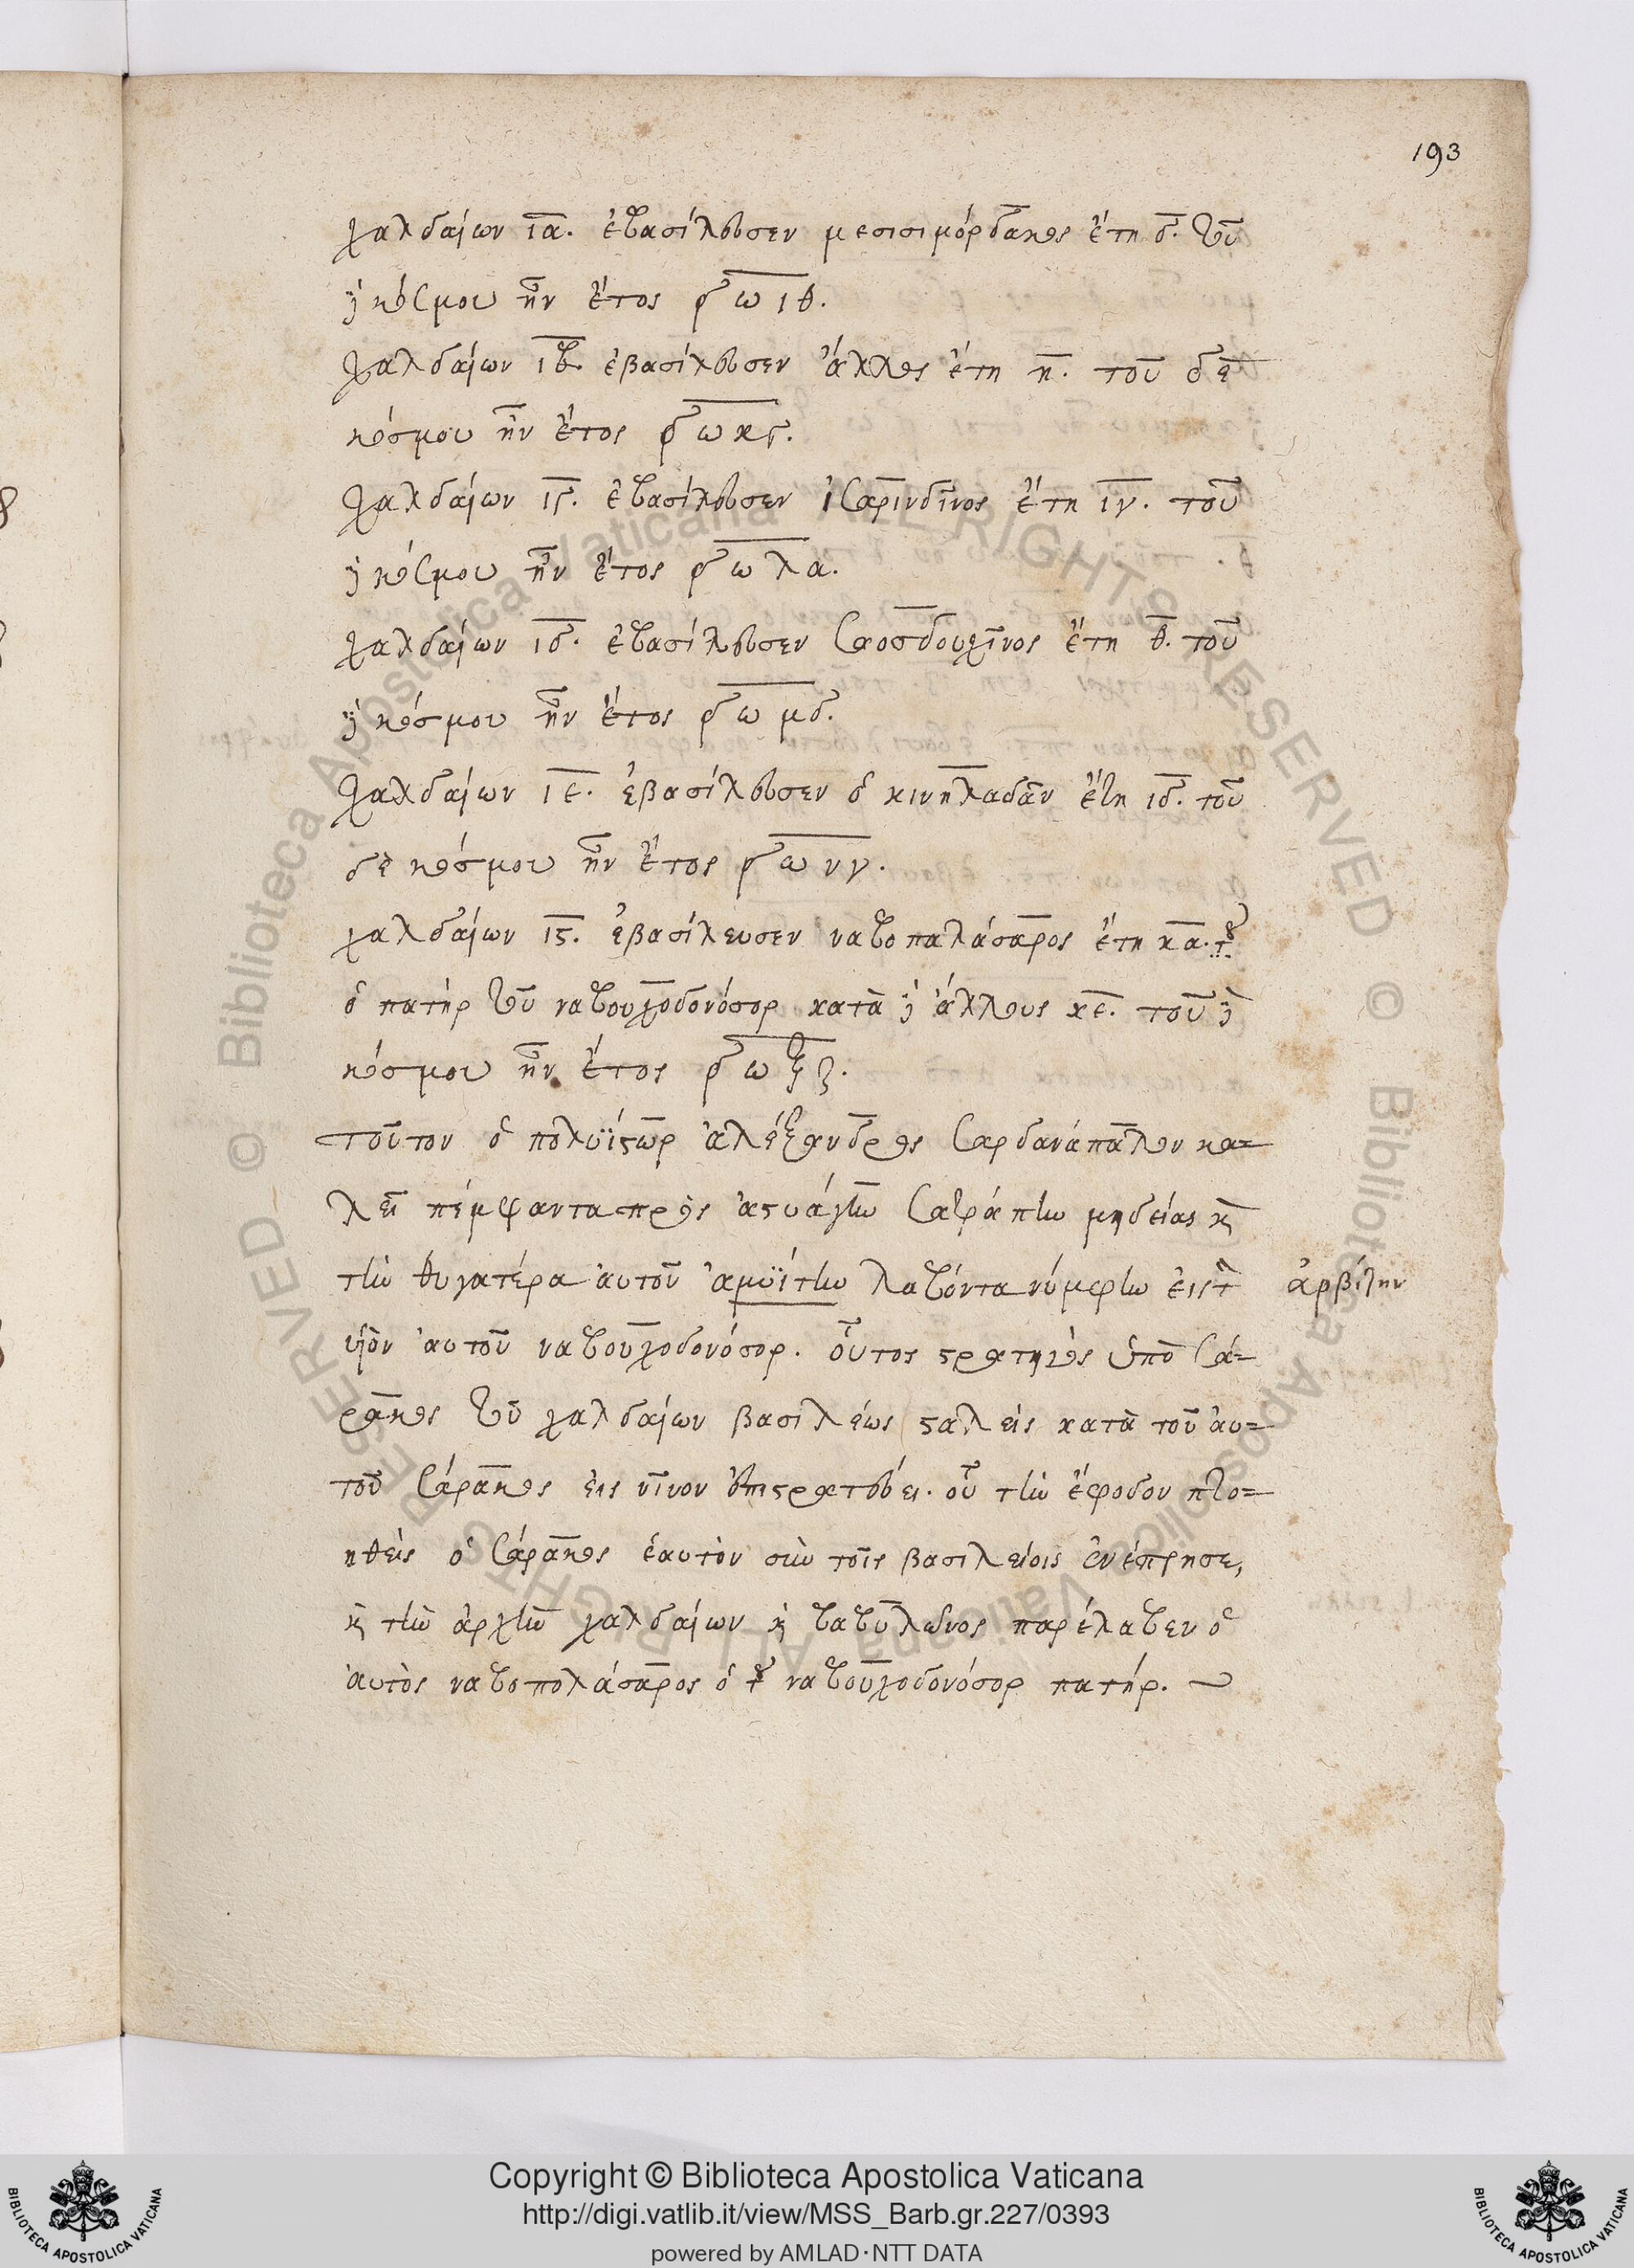 193
χαλδαίων ια. ἐβασίλευσεν μεσισιμόρδακος ἔτη δ. τοῦ
δὲ κόσμου ἦν ἔτος ͵δωιθ.
χαλδαίων ιβ. ἐβασίλευσεν ἄλλος ἔτη η. τοῦ δὲ
κόσμου ἦν ἔτος ͵δωκγ.
χαλδαίων ιγ. ἐβασίλευσεν ἰσαρινδῖνος ἔτη ιγ. τοῦ
δὲ κόσμου ἦν ἔτος ͵δωλα.
χαλδαίων ιδ. ἐβασίλευσεν σαοσδουχῖνος ἔτη θ. τοῦ
δὲ κόσμου ἦν ἔτος ͵δωμδ.
χαλδαίων ιε. ἐβασίλευσεν ὁ κινηλαδὰν ἔτη ιδ. τοῦ
δὲ κόσμου ἦν ἔτος ͵δωνγ.
χαλδαίων ιϛ. ἐβασίλευσεν ναβοπαλάσαρος ἔτη κα.
ὁ πατὴρ τοῦ ναβουχοδονόσορ κατὰ δὲ ἄλλους κε. τοῦ δὲ
κόσμου ἦν ἔτος ͵δωξζ.
τοῦτον ὁ πολυΐϛωρ ἀλέξανδρος σαρδανάπαλον κα=
λεῖ πέμψαντα πρὸς ἀϛυάγην σατράπην μηδείας κὶ
τὴν θυγατέρα αὐτοῦ ἀμυΐτην λαβόντα νύμφην εἰς τὸν
ἀρβίλην
υἱὸν αὐτοῦ ναβουχοδονόσορ. οὗτος ϛρατηγὸς ὑπὸ σά=
ρακος τοῦ χαλδαίων βασιλέως ϛαλεὶς κατὰ τοῦ αὐ=
τοῦ σάρακος εἰς νῖνον ἐπιϛρατεύει. οὗ τὴν ἔφοδον πτο=
ηθεὶς ὁ σάρακος ἑαυτὸν σὺν τοῖς βασιλείοις ἐνέπρησε,
κὶ τὴν ἀρχὴν χαλδαίων κὶ βαβυλῶνος παρέλαβεν ὁ
αὐτὸς ναβοπολάσαρος ὁ τοῦ ναβουχοδονόσορ πατήρ.
Copyright © Biblioteca Apostolica Vaticana
http://digi.vatlib.it/view/MSS_Barb.gr.227/0393
powered by AMLAD·NTT DATA
BIBLIOTECA APOSTOLICA VATICANA
BIBLIOTECA APOSTOLICA VATICANA
© Biblioteca Apostolica Vaticana ALL RIGHTS RESERVED © Biblioteca Apostolica Vaticana ALL RIGHTS RESERVED